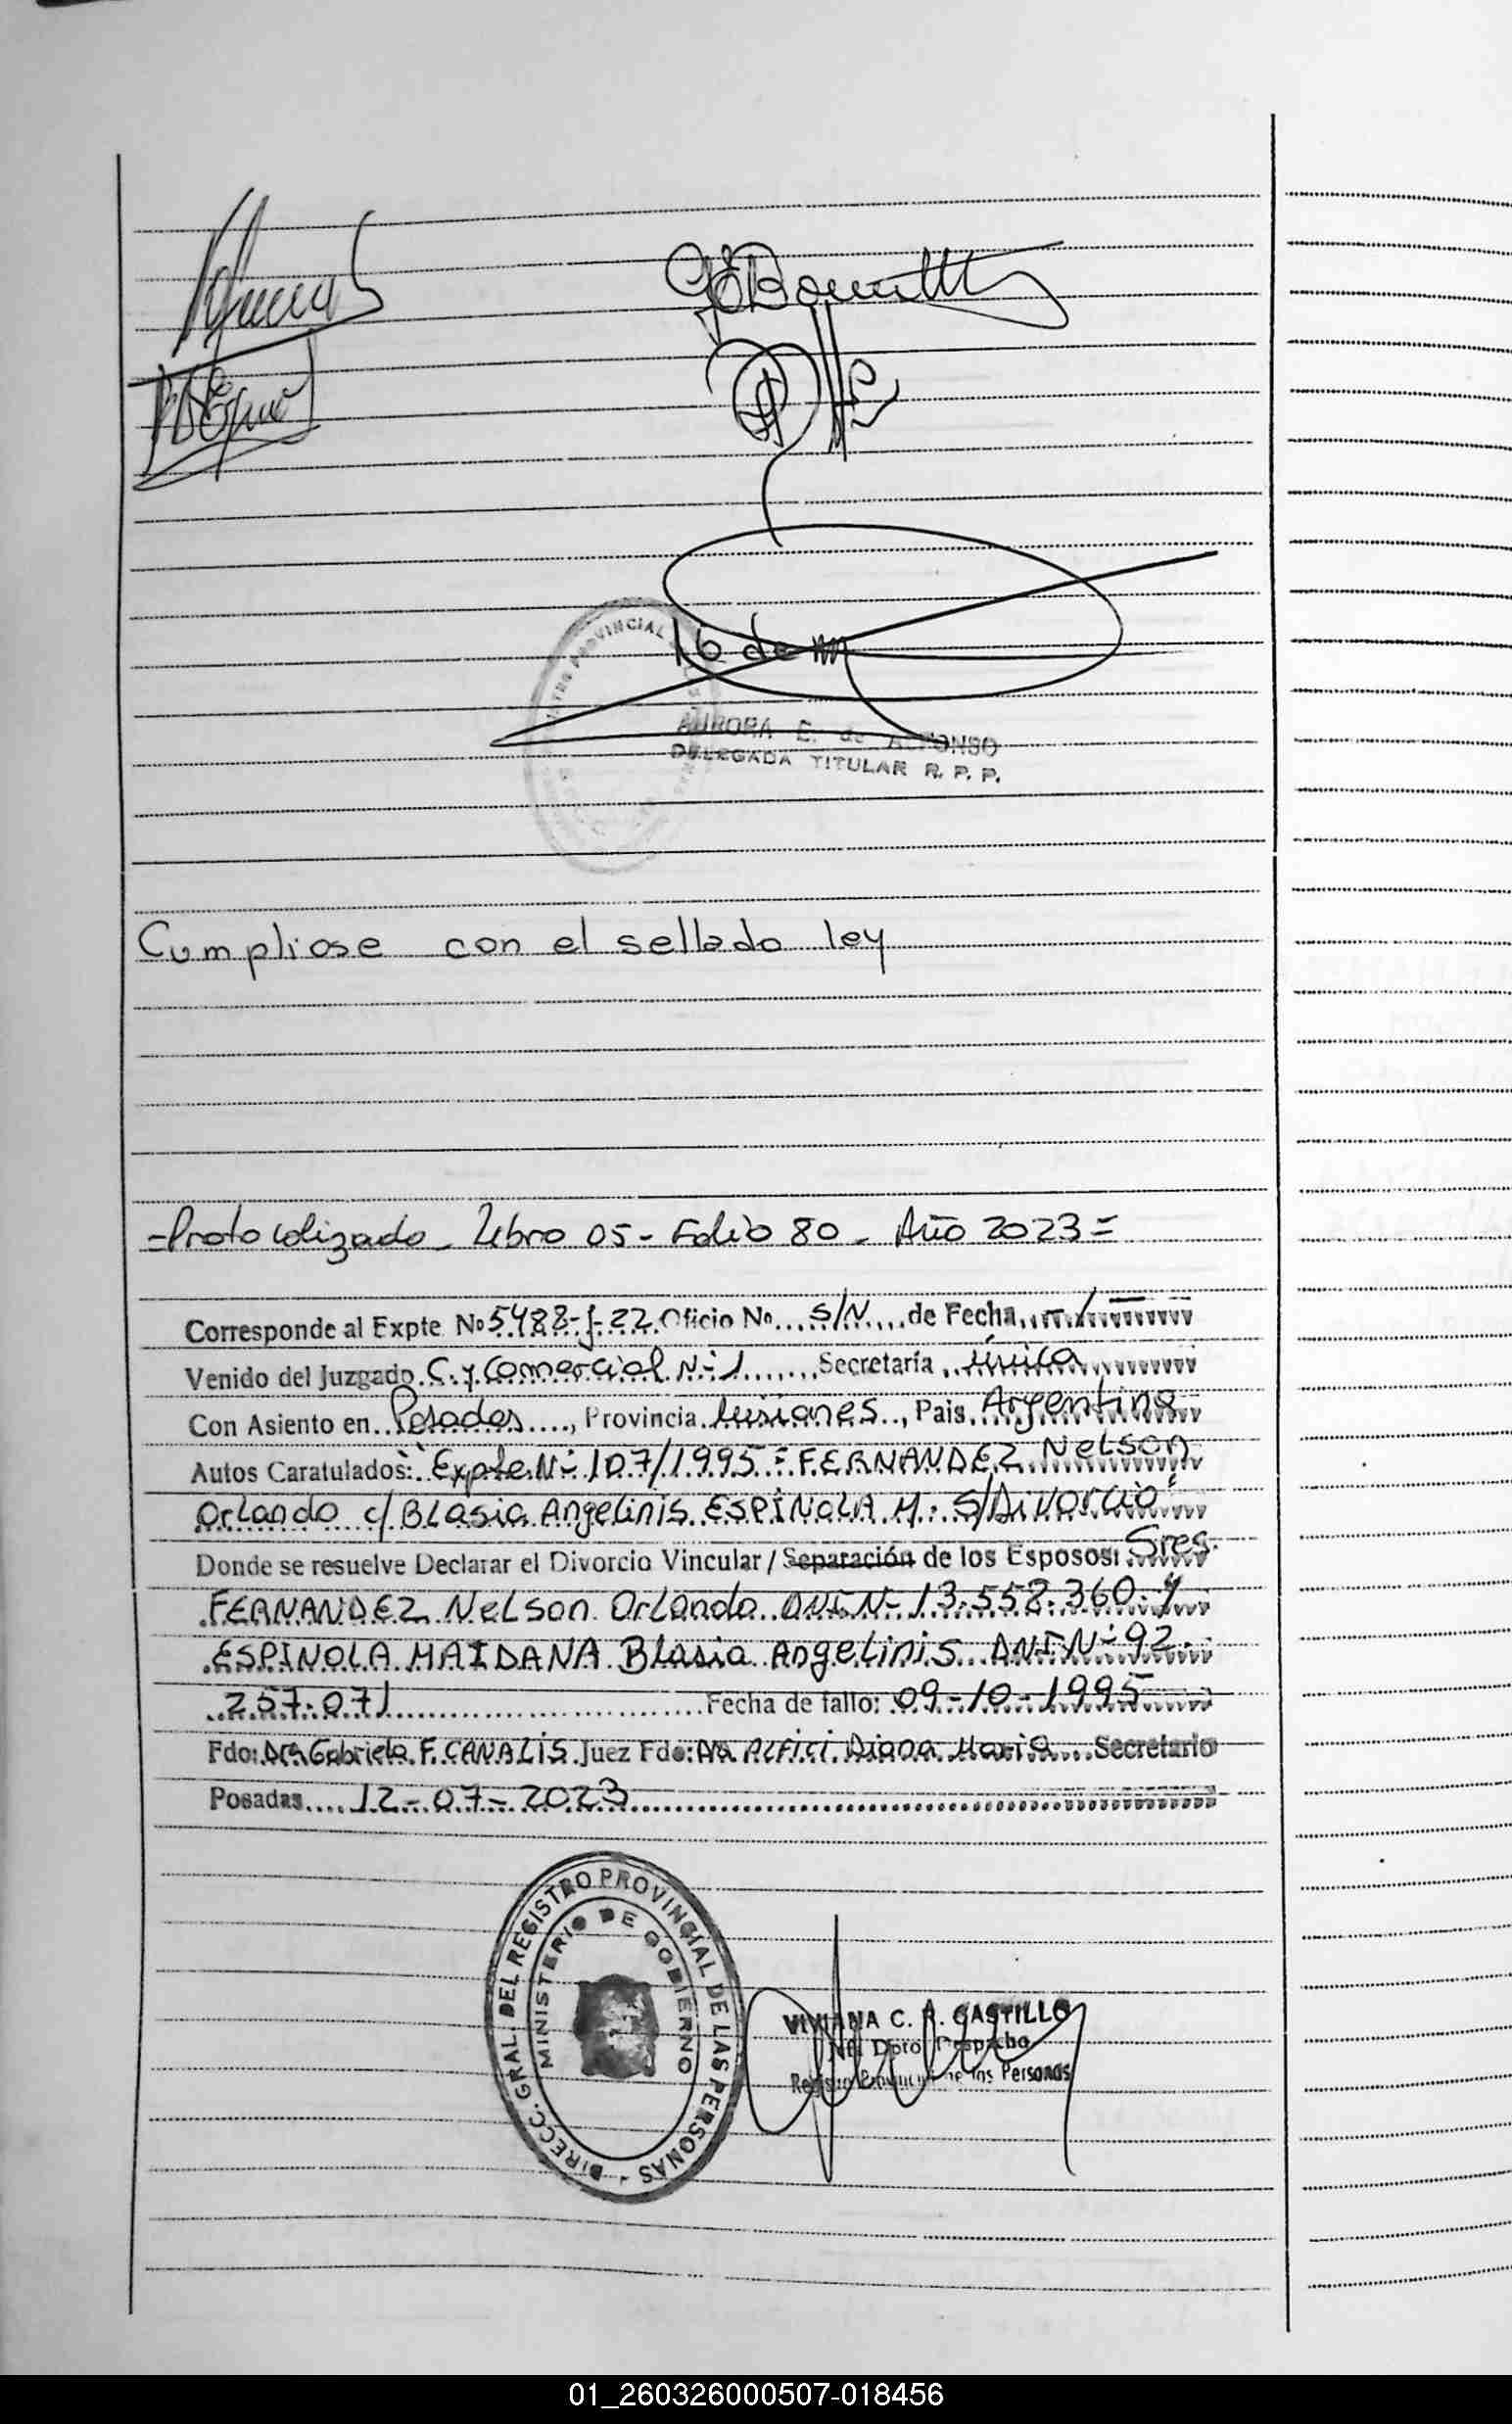 16 de m
AURORA E. de ALFONSO
DELEGADA TITULAR R. P. P.
Cumpliose con el sellado ley
=Protocolizado_ Libro 05- Folio 80_ Año 2023=
Corresponde al Expte Nº 5488-J-22 Oficio Nº S/N de Fecha
Venido del Juzgado C. y Comercial Nº 1 Secretaría única
Con Asiento en Posadas, Provincia Misiones, Pais Argentina
Autos Caratulados: "Expte Nº 107/1995 = FERNANDEZ Nelson
Orlando c/ BLasia Angelinis ESPÍNOLA M. S/Divorcio"
Donde se resuelve Declarar el Divorcio Vincular / Separación de los Esposos: Sres.
FERNANDEZ Nelson Orlando DNI Nº 13.558.360 y
ESPINOLA MAIDANA Blasia Angelinis DNI Nº 92.
257.071 Fecha de fallo: 09-10-1995
Fdo: Dra Gabriela F. CANALIS Juez Fdo: Dra ALFICI Diana Maria Secretario
Posadas 12-07-2023
DIRECC. GRAL. DEL REGISTRO PROVINCIAL DE LAS PERSONAS
MINISTERIO DE GOBIERNO
VIVIANA C. R. CASTILLO
Dpto Despacho
Registro Provincial de las Personas
01_260326000507-018456